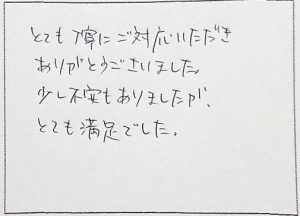 とても丁寧にご対応いただき
ありがとうございました。
少し不安もありましたが、
とても満足でした。